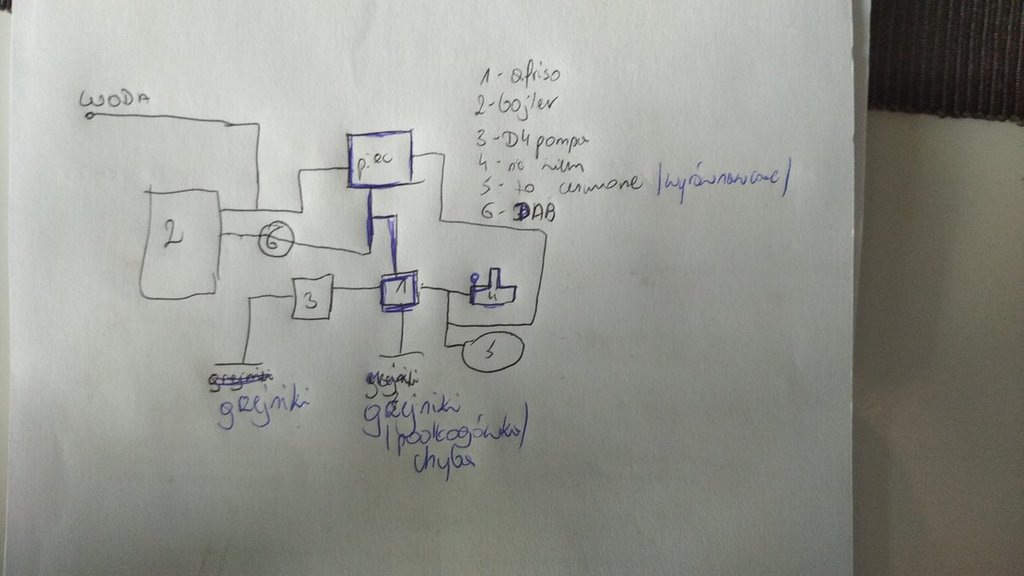 WODA
1 - afriso
2 - bojler
3 - D4 pompa
4 - nie wiem
5 - to czerwone /wyrównawcze/
6 - DAB
piec
2
6
3
1
4
5
grejniki
grejniki
grzejniki
grzejniki
/podłogówka/
chyba